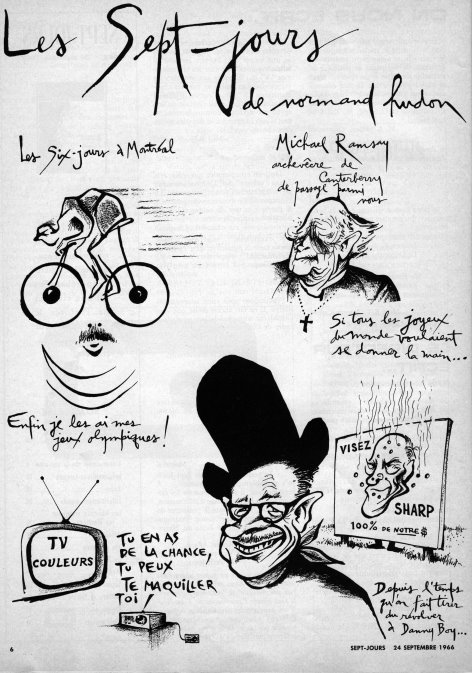 Les Sept-jours
de normand hudon
Les Six-jours à Montréal
Michael Ramsay
archevêcre de
Canterberry
de passage parmi
nous
Si tous les joyeux
du monde voulaient
se donner la main...
Enfin je les ai mes
jeux olympiques !
VISEZ
SHARP
100% DE NOTRE $
TV
COULEURS
TU EN AS
DE LA CHANCE,
TU PEUX
TE MAQUILLER
TOI !
Depuis l'temps
qu'on fait tirer
du révolver
à Danny Boy...
6
SEPT-JOURS 24 SEPTEMBRE 1966